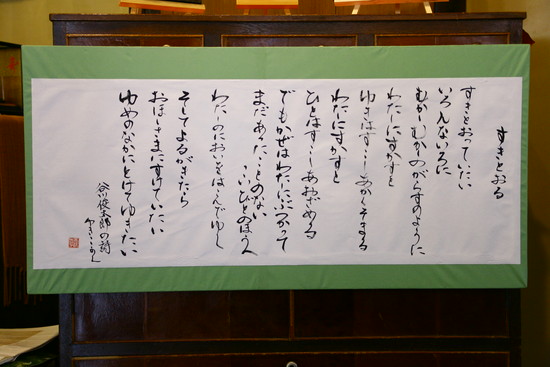 すきとおる
すきとおっていたい
いろんないろに
むかしむかしのがらすのように
わたしにすかすと
ゆきはすこしあかくそまる
わたしにすかすと
ひとはすこしあおざめる
でもかぜはわたしにぶつかって
まだあったことのない
こいびとのほうへ
わたしのにおいをはこんでゆく
そしてよるがきたら
おほしさまにすけていたい
ゆめのなかにとけてゆきたい
谷川俊太郎の詩